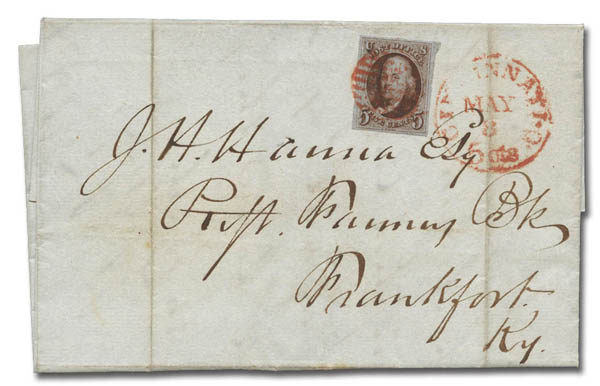 U S
POST OFFICE
5 FIVE CENTS 5
CINCINNATI O.
MAY
8
5 cts
J. H. Hanna Esq
Prest. Farmers Bk
Frankfort.
Ky.